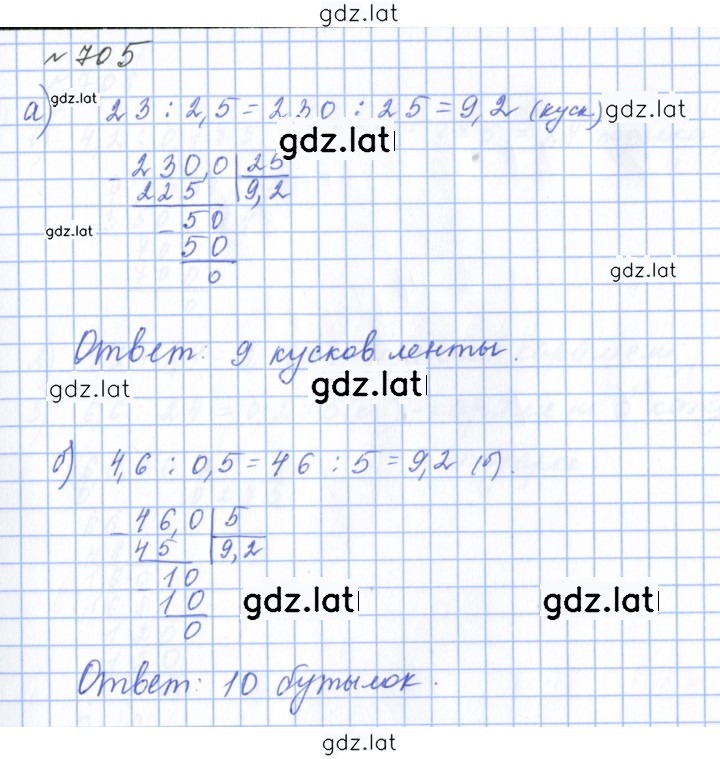 gdz.lat
№ 705
а) gdz.lat 23 : 2,5 = 230 : 25 = 9,2 (куск.) gdz.lat
gdz.lat
230,0 | 25
225 | 9,2
gdz.lat
- 50
50
0
gdz.lat
Ответ: 9 кусков ленты.
gdz.lat gdz.lat
б) 4,6 : 0,5 = 46 : 5 = 9,2 (б).
- 46,0 | 5
45 | 9,2
- 10
10
0
gdz.lat gdz.lat
Ответ: 10 бутылок.
gdz.lat